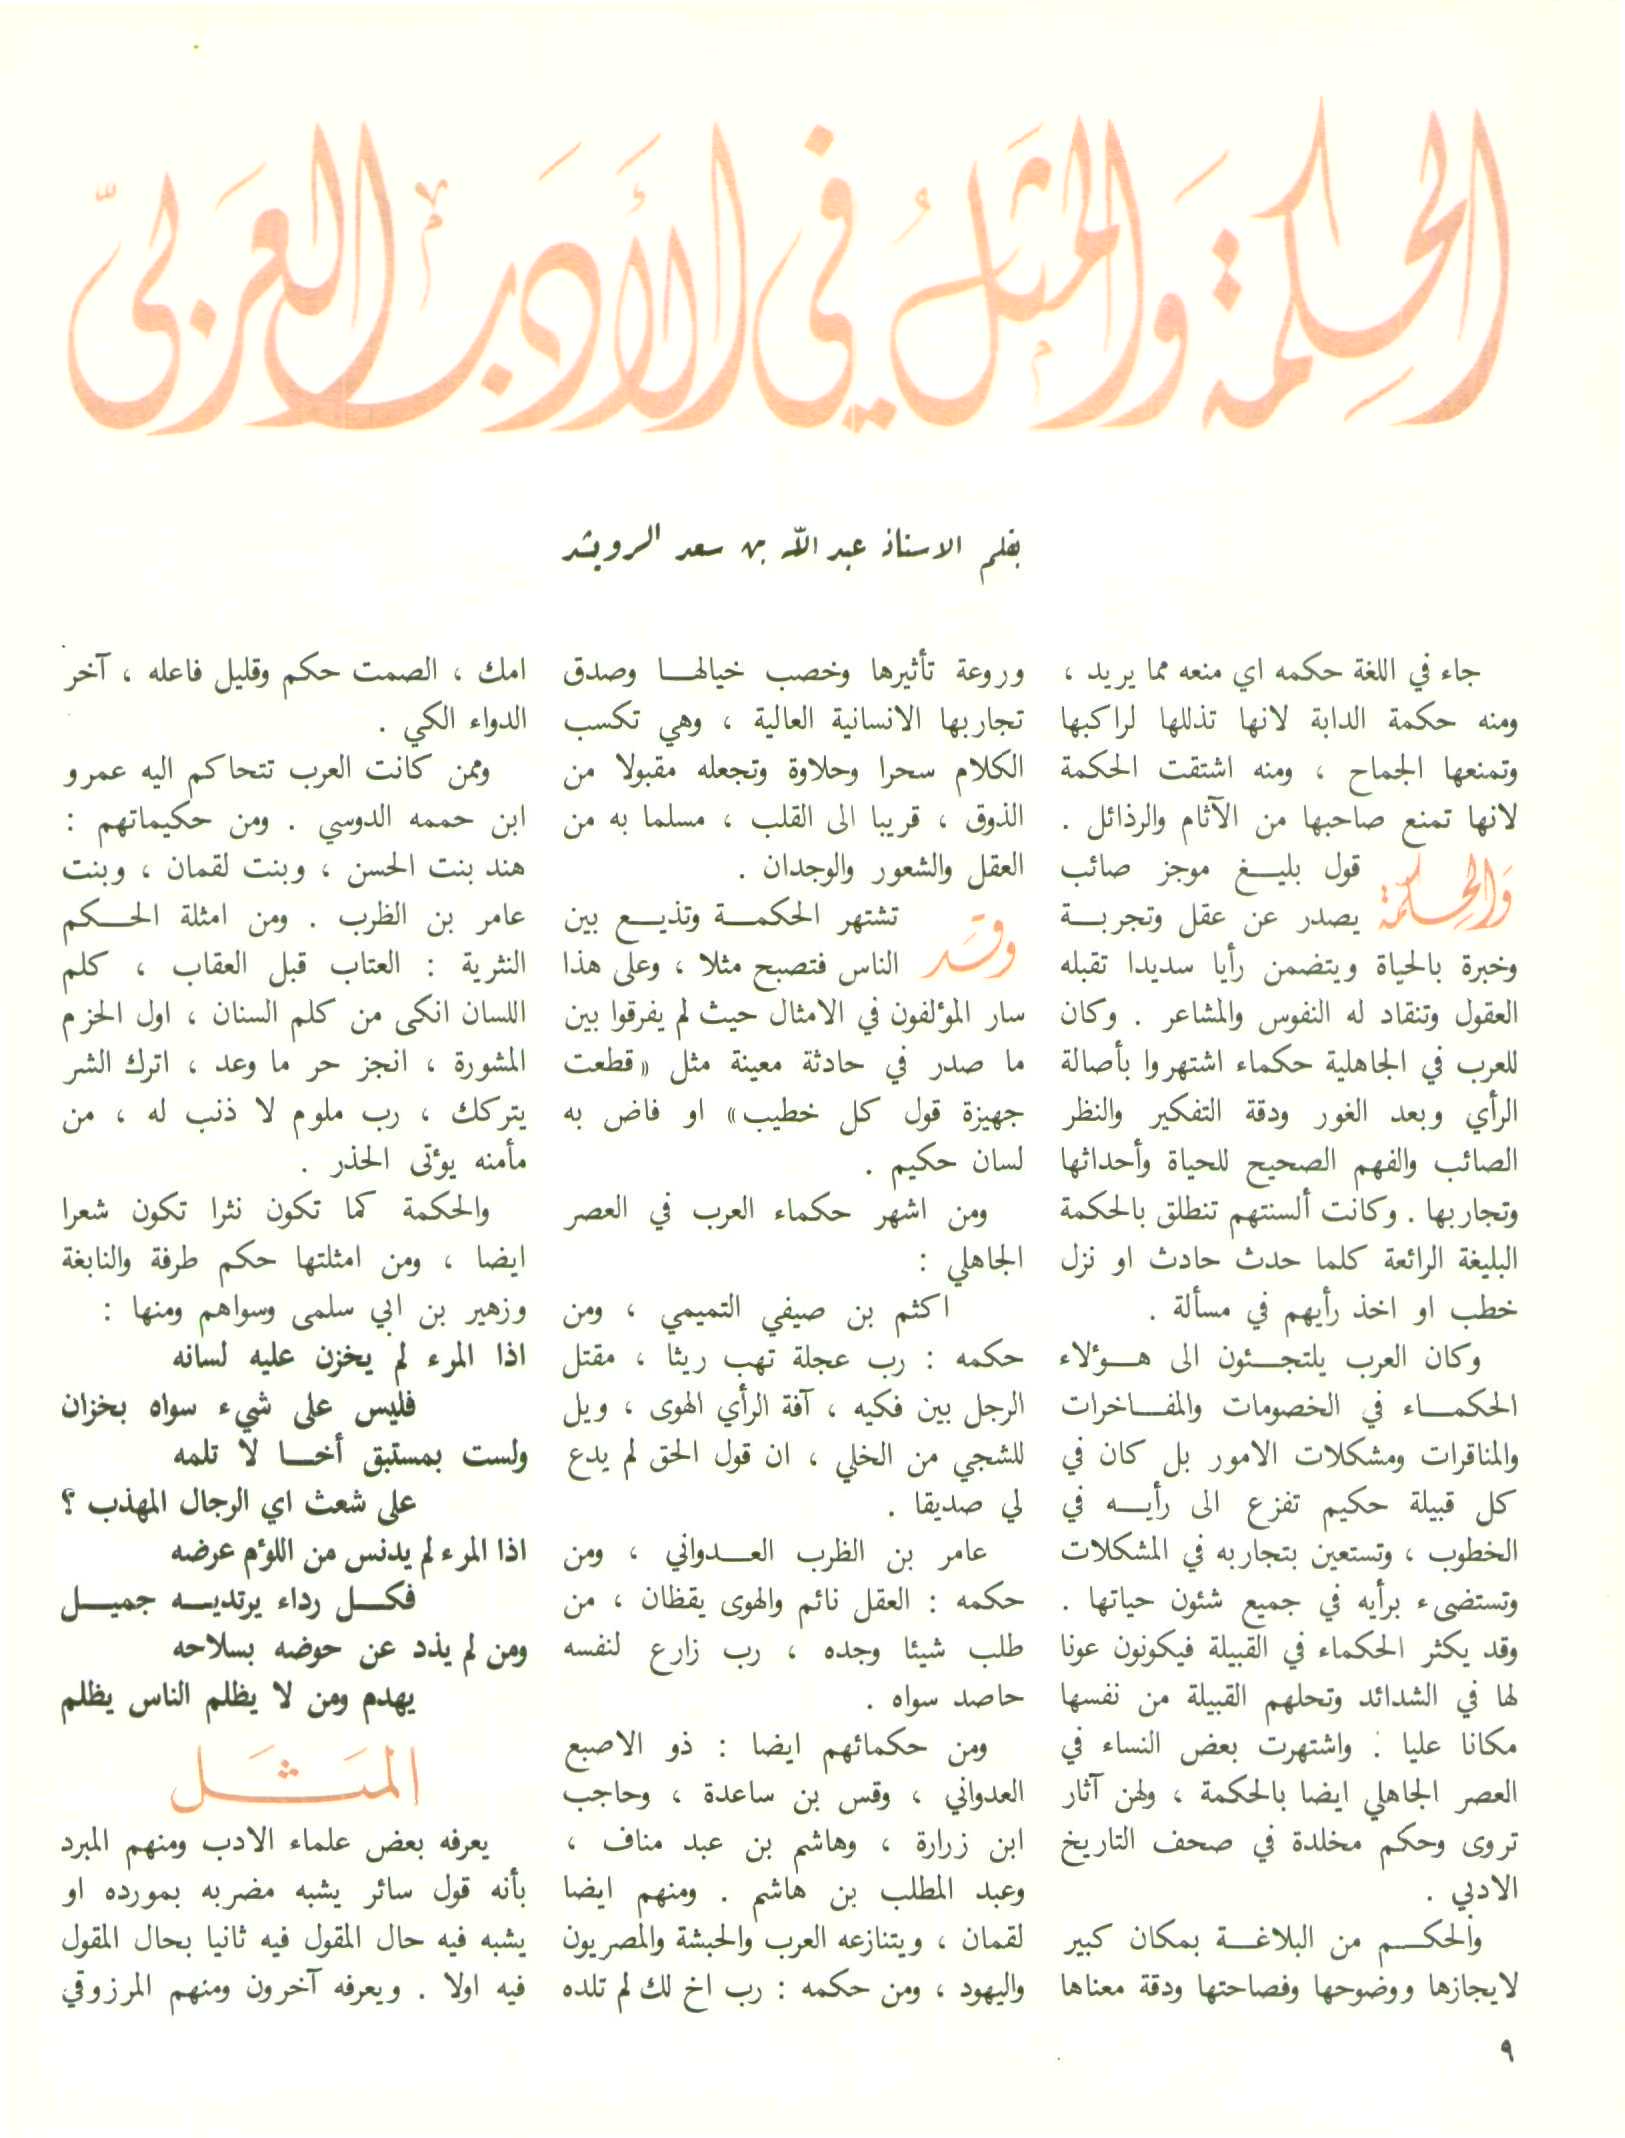 الحكمة والمثل في الأدب العربي
بقلم الاستاذ عبد الله بن سعد الرويشد
جاء في اللغة حكمه اي منعه مما يريد ،
ومنه حكمة الدابة لانها تذللها لراكبها
وتمنعها الجماح ، ومنه اشتقت الحكمة
لانها تمنع صاحبها من الآثام والرذائل .
والحكمة قول بليغ موجز صائب
يصدر عن عقل وتجربة
وخبرة بالحياة ويتضمن رأيا سديدا تقبله
العقول وتنقاد له النفوس والمشاعر . وكان
للعرب في الجاهلية حكماء اشتهروا بأصالة
الرأي وبعد الغور ودقة التفكير والنظر
الصائب والفهم الصحيح للحياة وأحداثها
وتجاربها . وكانت ألسنتهم تنطلق بالحكمة
البليغة الرائعة كلما حدث حادث او نزل
خطب او اخذ رأيهم في مسألة .
وكان العرب يلتجئون الى هؤلاء
الحكماء في الخصومات والمفاخرات
والمناقرات ومشكلات الامور بل كان في
كل قبيلة حكيم تفزع الى رأيه في
الخطوب ، وتستعين بتجاربه في المشكلات
وتستضىء برأيه في جميع شئون حياتها .
وقد يكثر الحكماء في القبيلة فيكونون عونا
لها في الشدائد وتحلهم القبيلة من نفسها
مكانا عليا . واشتهرت بعض النساء في
العصر الجاهلي ايضا بالحكمة ، ولهن آثار
تروى وحكم مخلدة في صحف التاريخ
الادبي .
والحكم من البلاغة بمكان كبير
لايجازها ووضوحها وفصاحتها ودقة معناها
وروعة تأثيرها وخصب خيالها وصدق
تجاربها الانسانية العالية ، وهي تكسب
الكلام سحرا وحلاوة وتجعله مقبولا من
الذوق ، قريبا الى القلب ، مسلما به من
العقل والشعور والوجدان .
وقد تشتهر الحكمة وتذيع بين
الناس فتصبح مثلا ، وعلى هذا
سار المؤلفون في الامثال حيث لم يفرقوا بين
ما صدر في حادثة معينة مثل « قطعت
جهيزة قول كل خطيب» او فاض به
لسان حكيم .
ومن اشهر حكماء العرب في العصر
الجاهلي :
اكثم بن صيفي التميمي ، ومن
حكمه : رب عجلة تهب ريثا ، مقتل
الرجل بين فكيه ، آفة الرأي الهوى ، ويل
للشجي من الخلي ، ان قول الحق لم يدع
لي صديقا .
عامر بن الظرب العدواني ، ومن
حكمه : العقل نائم والهوى يقظان ، من
طلب شيئا وجده ، رب زارع لنفسه
حاصد سواه .
ومن حكمائهم ايضا : ذو الاصبع
العدواني ، وقس بن ساعدة ، وحاجب
ابن زرارة ، وهاشم بن عبد مناف ،
وعبد المطلب بن هاشم . ومنهم ايضا
لقمان ، ويتنازعه العرب والحبشة والمصريون
واليهود ، ومن حكمه : رب اخ لك لم تلده
امك ، الصمت حكم وقليل فاعله ، آخر
الدواء الكي .
وممن كانت العرب تتحاكم اليه عمرو
ابن حممه الدوسي . ومن حكيماتهم :
هند بنت الحسن ، وبنت لقمان ، وبنت
عامر بن الظرب . ومن امثلة الحكم
النثرية : العتاب قبل العقاب ، كلم
اللسان انكى من كلم السنان ، اول الحزم
المشورة ، انجز حر ما وعد ، اترك الشر
يتركك ، رب ملوم لا ذنب له ، من
مأمنه يؤتى الحذر .
والحكمة كما تكون نثرا تكون شعرا
ايضا ، ومن امثلتها حكم طرفة والنابغة
وزهير بن ابي سلمى وسواهم ومنها :
اذا المرء لم يخزن عليه لسانه
فليس على شيء سواه بخزان
ولست بمستبق أخا لا تلمه
على شعث اي الرجال المهذب ؟
اذا المرء لم يدنس من اللؤم عرضه
فكل رداء يرتديه جميل
ومن لم يذد عن حوضه بسلاحه
يهدم ومن لا يظلم الناس يظلم
المثل
يعرفه بعض علماء الادب ومنهم المبرد
بأنه قول سائر يشبه مضربه بمورده او
يشبه فيه حال المقول فيه ثانيا بحال المقول
فيه اولا . ويعرفه آخرون ومنهم المرزوقي
٩